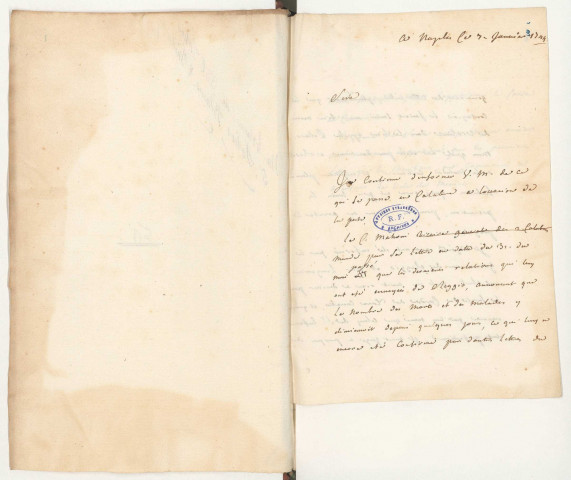 A Naples Ce 7. Janvier
Sire
Je Continue d'informer V. M. de ce
qui se passe en Calabre a l'occasion de
la peste
R.F.
Le C. Mahoni
mande par sa lettre en datte du 31. du
mois passé que les dernieres relations qui luy
ont été envoyées de Reggio, annoncent que
le Nombre des Morts et des Malades y
diminuoit depuis quelques jours, ce qui luy a
encore été Confirmé par d'autres lettres du